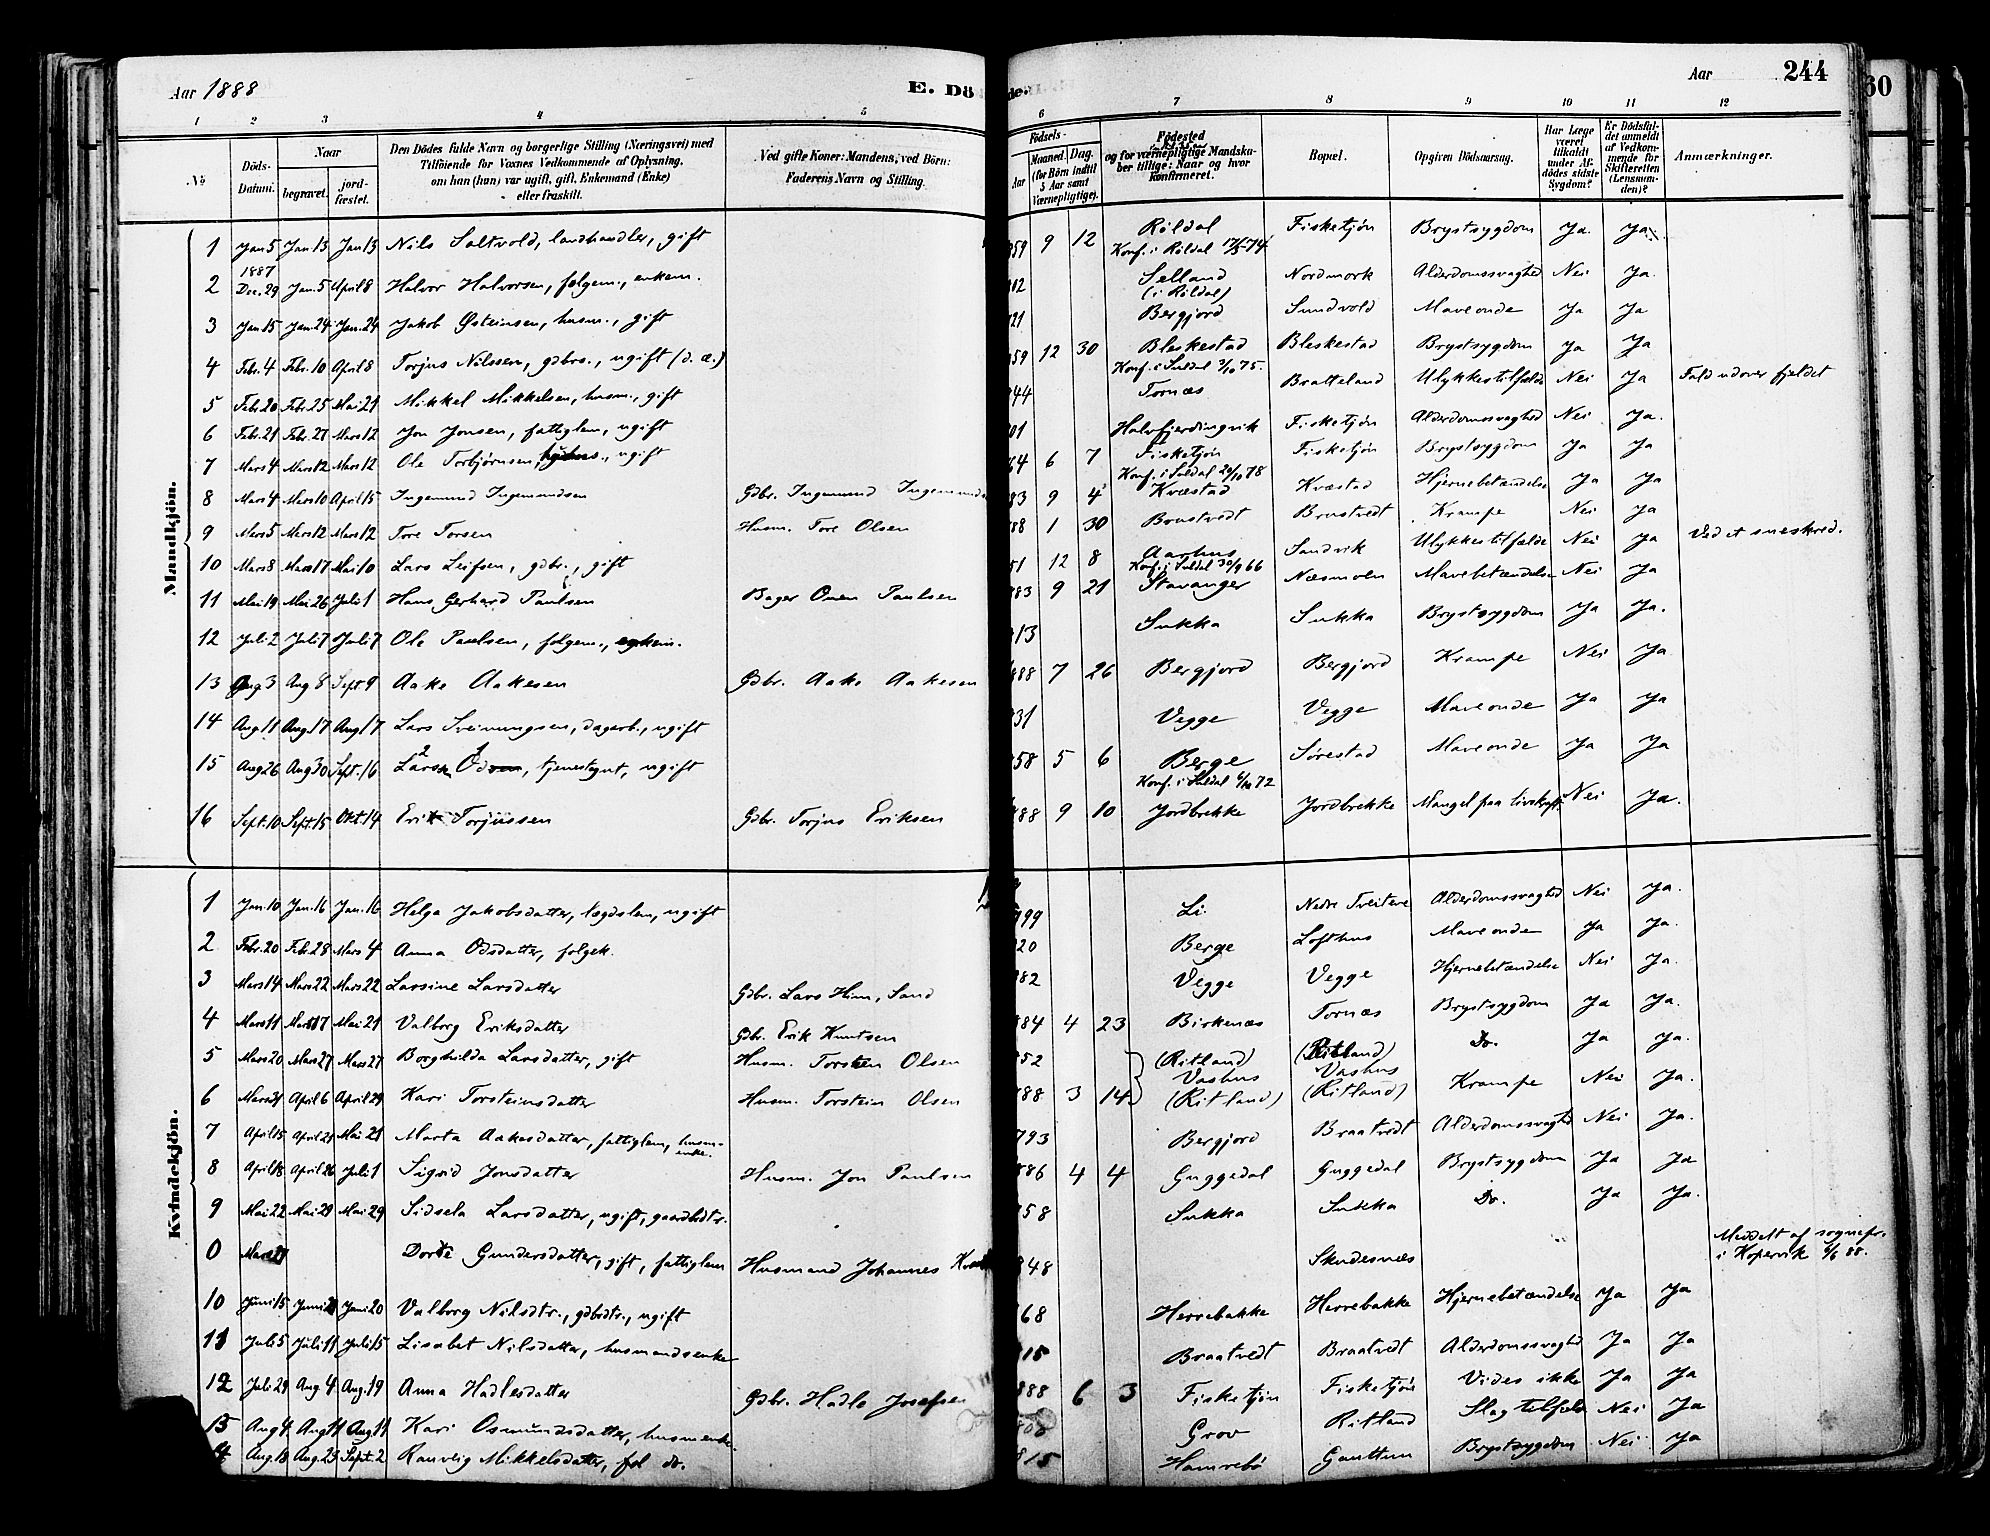 Aar 1888
E. Dö
de.
Aar
244
60
1 2 3 4 5 6 7 8 9 10 11 12
№
Döds-Datum.
Naar
begravet.
jord-fæstet.
Den Dödes fulde Navn og borgerlige Stilling (Næringsvei) med
Tilföiende for Voxnes Vedkommende af Oplysning,
om han (hun) var ugift, gift, Enkemand (Enke)
eller fraskilt.
Ved gifte Koner: Mandens, ved Börn:
Faderens Navn og Stilling.
Födsels-
Aar
Maaned. Dag.
(for Börn indtil
5 Aar samt
Værnepligtige).
Födested
og for værnepligtige Mandska-
ber tillige: Naar og hvor
konfirmeret.
Bopæl.
Opgiven Dödsaarsag.
Har Læge
været
tilkaldt
under Af-
dödes sidste
Sygdom?
Er Dödsfal-
det anmeldt
af Vedkom-
mende for
Skifteretten
(Lensman-
den)?
Anmærkninger.
Mandkjön.
1 Jan 5 Jan 13 Jan 13 Nils Saltvold, landhandler, gift 859 9 12 Röldal Fisketjön Brystsygdom Ja Ja
Konf. i Röldal 74
2 1887 Dec. 29 Jan. 5 April 8 Halvor Halvorsen, folgem., enkem. 812 Selland (i Röldal) Nordmork Alderdomssvaghed Nei Ja
3 Jan 15 Jan. 24 Jan. 24 Jakob Østeinsen, husm., gift 821 Bergjord Sundvold Maveonde Ja Ja
4 Febr. 4 Febr. 10 April 8 Torjus Nilssen, gdbrs., ugift (d. æ.) 859 12 30 Bleskestad Bleskestad Brystsygdom Ja Ja
Konf. i Suldal 3/10 75.
5 Febr. 20 Febr. 25 Mai 21 Mikkel Mikkelsen, husm., gift 844 Tornæs Bratteland Ulykkestilfælde Nei Ja Fald udover fjeldet
6 Febr. 21 Febr. 27 Mars 12 Jon Jonsen, fattiglem, ugift 801 Halvfjerdingvik Fisketjön Alderdomssvaghed Nei Ja.
7 Mars 4 Mars 12 Mars 12 Ole Torbjörnsen, ugift 64 6 7 Fisketjön Fisketjön Brystsygdom Ja Ja
Konf. i Suldal 20/10 78
8 Mars 4 Mars 10 April 15 Ingemund Ingemundsen Gdbr. Ingemund 83 9 4 Kvæstad Kvæstad Hjernebetændelse Ja Ja
9 Mars 5 Mars 12 Mars 12 Tore Torsen Husm. Tore Olsen 88 1 30 Brustvedt Brustvedt Krampe Nei Ja
10 Mars 8 Mars 17 Mai 10 Lars Leifsen, gdbr., gift 51 12 8 Aarhus Sandvik Ulykkestilfælde Nei Ja Ved et sneskred.
Konf. i Suldal 30/9 66
11 Mai 19 Mai 26 Juli 1 Hans Gerhard Paulsen Bager Paulsen 883 9 21 Stavanger Næsmoen Mavebetændelse Nei Ja
12 Juli 2 Juli 7 Juli 7 Ole Paulsen, folgem., enkem. 813 Sukka Sukka Brystsygdom Ja Ja.
13 Aug 3 Aug 8 Sept 9 Aake Aakesen Gdbr. Aake Aakesen 888 7 26 Bergjord Bergjord Krampe Nei Ja
14 Aug 11 Aug 17 Aug 17 Lars Sveinungsen, dagarb., ugift 831 Vegge Vegge Maveonde Ja Ja
15 Aug 26 Aug 30 Sept. 16 Lars Od, tjenestegut, ugift 858 5 6 Berge Sörestad Maveonde Ja Ja
Konf. i Suldal 72
16 Sept. 10 Sept. 15 Okt. 14 Erik Torjussen Gdbr. Torjus Eriksen 888 9 10 Jordbrekke Jordbrekke Mangel paa livskraft Nei Ja.
Kvindekjön.
1 Jan. 10 Jan. 16 Jan. 16 Helga Jakobsdatter, lægdslem, ugift 799 Li. Nedre Tveitene Alderdomssvaghed Nei Ja.
2 Febr. 20 Febr. 28 Mars 4 Anna Odsdatter, folgek. 820 Berge Lofthus Maveonde Ja Ja.
3 Mars 14 Mars 22 Mars 22 Larsine Larsdatter Gdbr. Lars Hiim, Sand 882 Vegge Vegge Hjernebetændelse Nei Ja.
4 Mars 11 Mars 17 Mai 21 Valborg Eriksdatter Gdbr. Erik Knutsen 884 4 23 Birkenæs Tornæs Brystsygdom Ja Ja.
5 Mars 20 Mars 27 Mars 27 Borghilda Larsdatter, gift Husm. Torstein Olsen 852 (Ritland) (Ritland) Do. Ja Ja.
Vashus Vashus
6 April 6 April 29 Kari Torsteinsdatter Husm. Torstein Olsen 888 3 14 (Ritland) (Ritland) Krampe Nei Ja.
7 April 15 April 21 Mai 21 Marta Aakesdatter, fattiglem, husm-enke. 793 Bergjord Braatvedt Alderdomssvaghed Nei Ja.
8 April 18 April 26 Juli 1 Sigrid Jonsdatter Husm. Jon Paulsen 886 4 4 Guggedal Guggedal Brystsygdom Ja Ja
9 Mai 22 Mai 29 Mai 29 Sidsela Larsdatter, ugift, gaardbdtr. 858 Sukka Sukka Do. Ja Ja.
0 Mars Dorte Gundersdatter, gift, fattiglem Husmand Johannes 848 Skudesnæs Meddelt af sognepr. i Kopervik 88.
10 Juni 15 Juni 20 Juni 20 Valborg Nilsdtr., gdbrdtr., ugift 868 Herrebakke Herrebakke Hjernebetændelse Ja Ja
11 Juli 5 Juli 11 Juli 15 Lisabet Nilsdatter, husmandsenke 815 Braatvedt Braatvedt Alderdomssvaghed Ja Ja
12 Juli 29 Aug. 4 Aug. 19 Anna Hadlesdatter Gdbr. Hadle Josefsen 888 6 3 Fisketjön Fisketjön Vides ikke Ja Ja
13 Aug 4 Aug 11 Aug 11 Kari Osmundsdatter, husmenke. 808 Grov Ritland Slagtilfæld Nei Ja
Aug. 18 Aug. 23 Sept. 2 Ranveig Mikkelsdatter, fol do. 815 Hamrebö Gauttun Brystsygdom Nei Ja